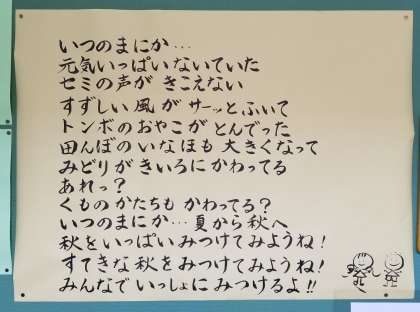 いつのまにか…
元気いっぱいないていた
セミの声が きこえない
すずしい風が サーッとふいて
トンボのおやこが とんでった
田んぼの いなほも 大きくなって
みどりが きいろに かわってる
あれっ？
くものかたちも かわってる？
いつのまにか…夏から秋へ
秋をいっぱいみつけてみようね！
すてきな秋をみつけてみようね！
みんなで いっしょに みつけるよ!!